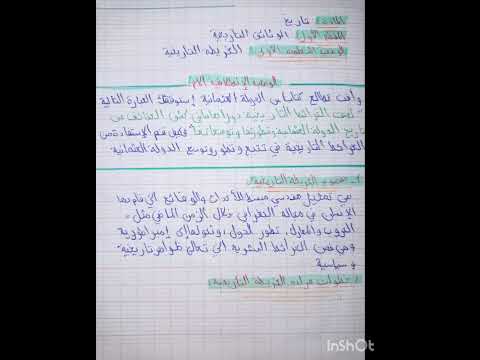 المادة: تاريخ
المقطع الأول: الوثائق التاريخية
الوضعية التعلمية الأولى: الخريطة التاريخية
الوضعية الانطلاقية الأم
وأنت تطالع كتابا عن الدولة العثمانية إستوقفتك العبارة التالية
"لعبت الخرائط التاريخية دورا هاما في كشف الحقائق عن
تاريخ الدولة العثمانية وتطورها وتوسعاتها" فكيف تتم الإستفادة من
الخرائط التاريخية في تتبع وتطور وتوسع الدولة العثمانية.
1- مفهوم الخريطة التاريخية:
هي تمثيل هندسي مبسط للأحداث والوقائع التي قام بها
الإنسان في مجاله الجغرافي خلال الزمن الماضي مثل:
الحروب والمعارك، تطور الدول، وتحولها إلى إمبراطورية
وهي من الخرائط البشرية التي تعالج ظواهر تاريخية
وسياسية
2- خطوات قراءة الخريطة التاريخية
InShOt